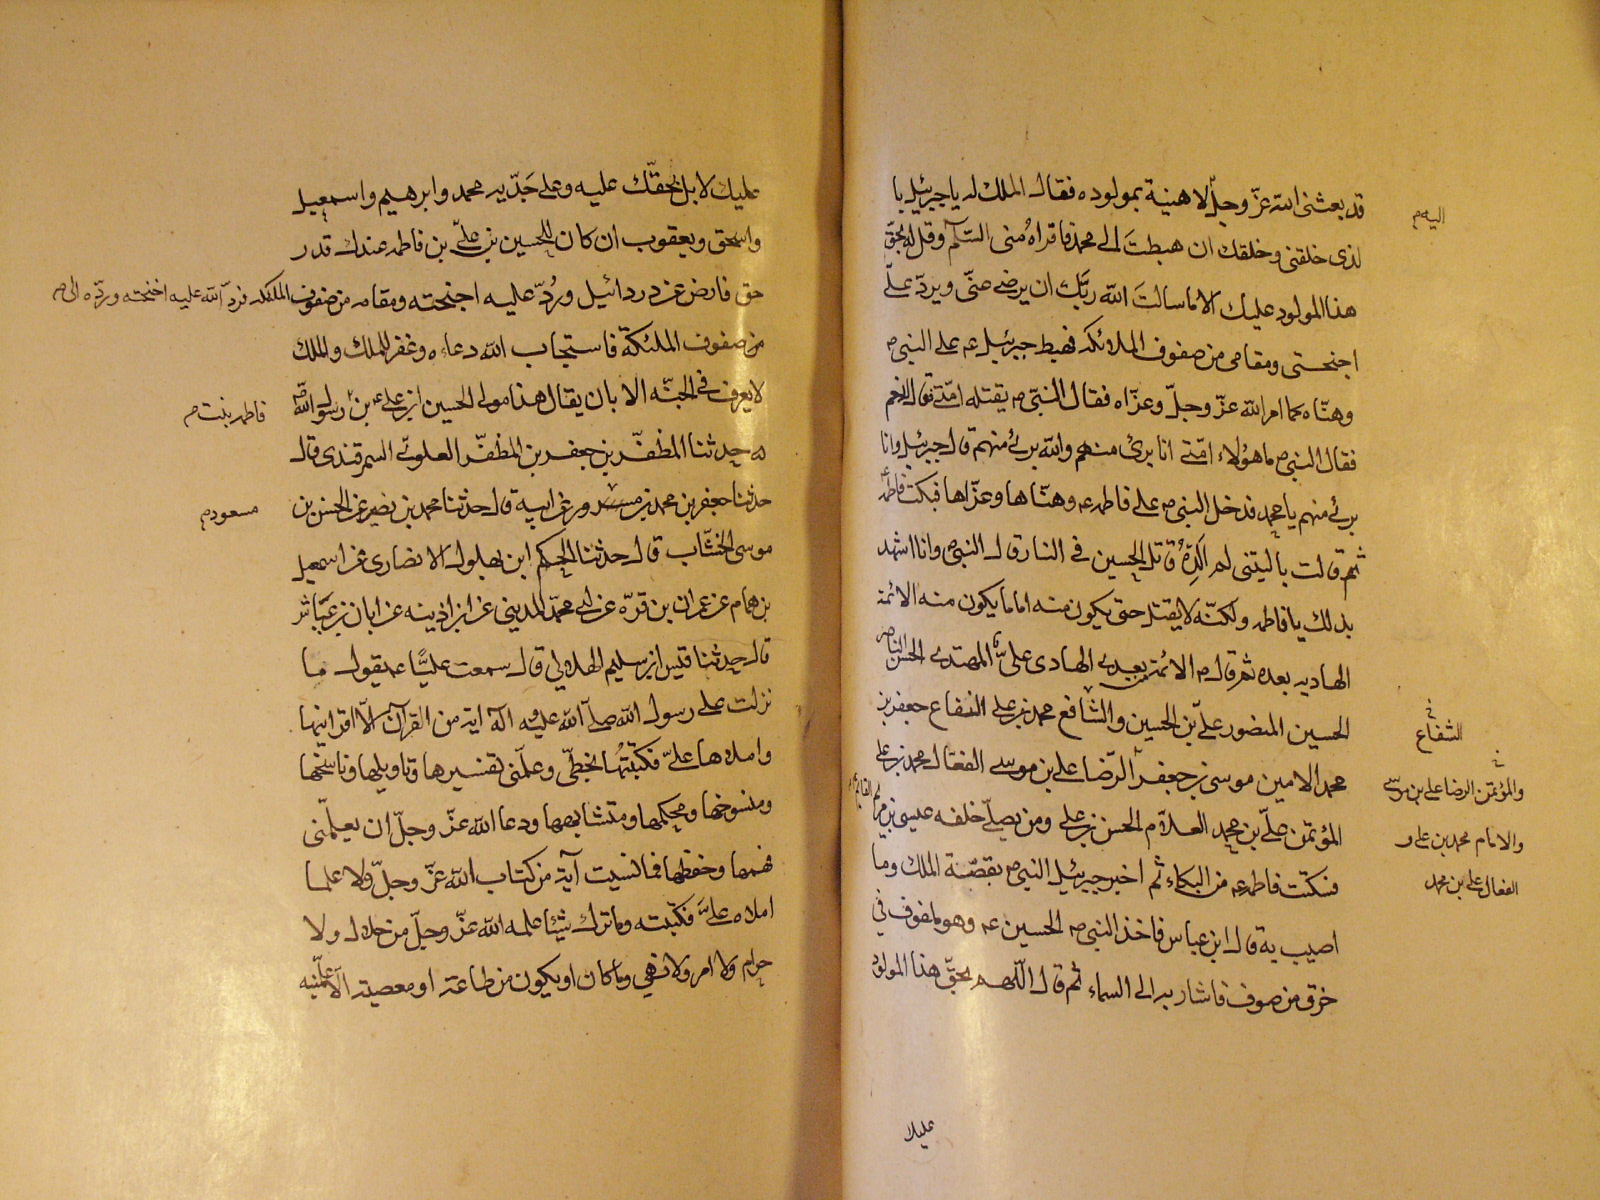 قد بعثنى الله عزّ وجلّ لاهنية بمولوده فقال الملك له يا جبرئيل با
اليه م
لذى خلقنى وخلقك ان هبطتَ الى محمد فاقراه منى السّلم وقل له بحقّ
هذا المولود عليك الا ما سالتَ الله ربّك ان يرضى عنّى ويردّ علىّ
اجنحتى ومقامى من صفوف الملائكه فهبط جبرئيل عم على النبى ص
وهنّاه كما امر الله عزّ وجلّ وعزّاه فقال النبّى ص يقتله امّتى قال نعم
فقال النبى ص ما هؤلاء امّتى انا برئ منهم والله برئ منهم قال جبرئيل وانا
برئ منهم يا محمد فدخل النبى ص على فاطمه عم وهنّاها وعزّاها فبكت فاطمه
ثم قالت يا ليتنى لم الدهُ قاتل الحسين فى النار قال النبى ص وانا اشهد
بذلك يا فاطمه ولكنّه لا يقتل حتى يكون منه اماما يكون منه الائمة
الهاديه بعده ثم قال ص الائمة بعدى الهادى علىّ المهتدى الحسن الناصر
الحسين المنصور علىّ بن الحسين والشافع محمد بن على النفاع جعفر بن
الشفاع
محمد الامين موسى بن جعفر الرّضا على بن موسى الفعّال محمد بن على
والمؤتمن الرضا على بن موسى
المؤتمن علىّ بن محمد العلاّم الحسن بن على ومن يصلّى خلفه عيسى بن مريم القايم عم
والامام محمد بن على و
فسكنت فاطمه عم من البكاء ثم اخبر جبرئيل النبى ص بقصّة الملك وما
الفعال على بن محمد
اصيب به قال ابن عباس فاخذ النبى ص الحسين عم وهو ملفوف فى
خرق من صوف فاشار به الى السماء ثم قال اللّهم بحقّ هذا المولود
عليك
عليك لا بل بحقّك عليه وعلى جَدّيه محمد وابرهيم واسمعيل
واسحق ويعقوب ان كان للحسين بن علىّ بن فاطمه عندك قدر
حق فارض عن دردائيل ورُدّ عليه اجنحته ومقامه من صفوف الملئكه فرد الله عليه اجنحته وردّه الى م
من صفوف الملئكة فاستجاب الله دعاءه وغفر للملك والملك
لا يعرف فى الجنّه الا بان يقال هذا مولى الحسين ابن على عم بن رسول الله ص
فاطمه بنت م
حدثنا المظفّر بن جعفر بن المظفّر العلوىّ السمرقندى قال
حدثنا جعفر بن محمد بن مسرور عن ابيه قال حدثنا محمد بن نصير عن الحسن بن
مسعود م
موسى الخشّاب قال حدثنا الحكم ابن بهلول الانصارى عن اسمعيل
بن همام عن عمران بن قرّه عن ابى محمّد المدينى عن ابن اذينه عن ابان بن عيّاش
قال حدثنا قيس ابن سليم الهلالى قال سمعت عليًّا عم يقول ما
نزلت على رسول الله صلى الله عليه و اله آية من القرآن الاّ اقرانيها
واملاها علىّ فكتبتُها بخطّى وعلّمنى تفسيرها وتاويلها وناسخها
ومنسوخها ومحكمها ومتشابهها ودعا الله عزّ وجلّ ان يعلّمنى
فهمها وحفظها فما نسيت آية من كتاب الله عزّ وجلّ ولا علما
املاه علىّ فكتبته وما ترك شيئا علمه الله عزّ وجلّ من حلال ولا
حرام ولا امر ولا نهى وما كان او يكون من طاعة او معصية الا علّمنيه